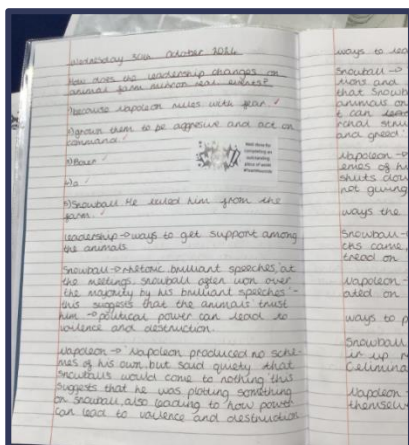 Wednesday 30th October 2024
How does the leadership changes on
animal farm mirror real events?
1) because Napoleon rules with fear.
2) grown them to be aggresive and act on
command
3) Boxer
4) a
5) Snowball He ruled him from the
farm.
Leadership → ways to get support among
the animals
Snowball → rhetoric, brilliant speeches, 'at
the meetings, snowball often won over
the majority by his brilliant speeches' -
this suggests that the animals trust
him → political power can lead to
violence and destruction.
Napoleon → 'Napoleon produced no sche-
mes of his own, but said quietly that
snowballs would come to nothing' this
suggests that he was plotting something
on snowball, also leading to how power
can lead to violence and destruction
Well done for
completing an
outstanding
piece of work!
ways to lea
Snowball →
that Snowb
animals on
t can lead
and greed'
Napoleon →
emes of hi
shuts dow
not giving
ways the
Snowball -
chs came
tread on
Napoleon -
ated on
ways to p
Snowball
in up r
Napoleon
themselv